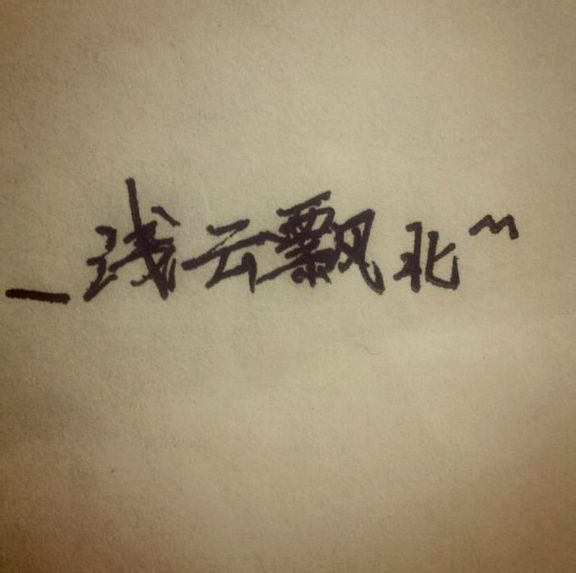 _浅云飘北~